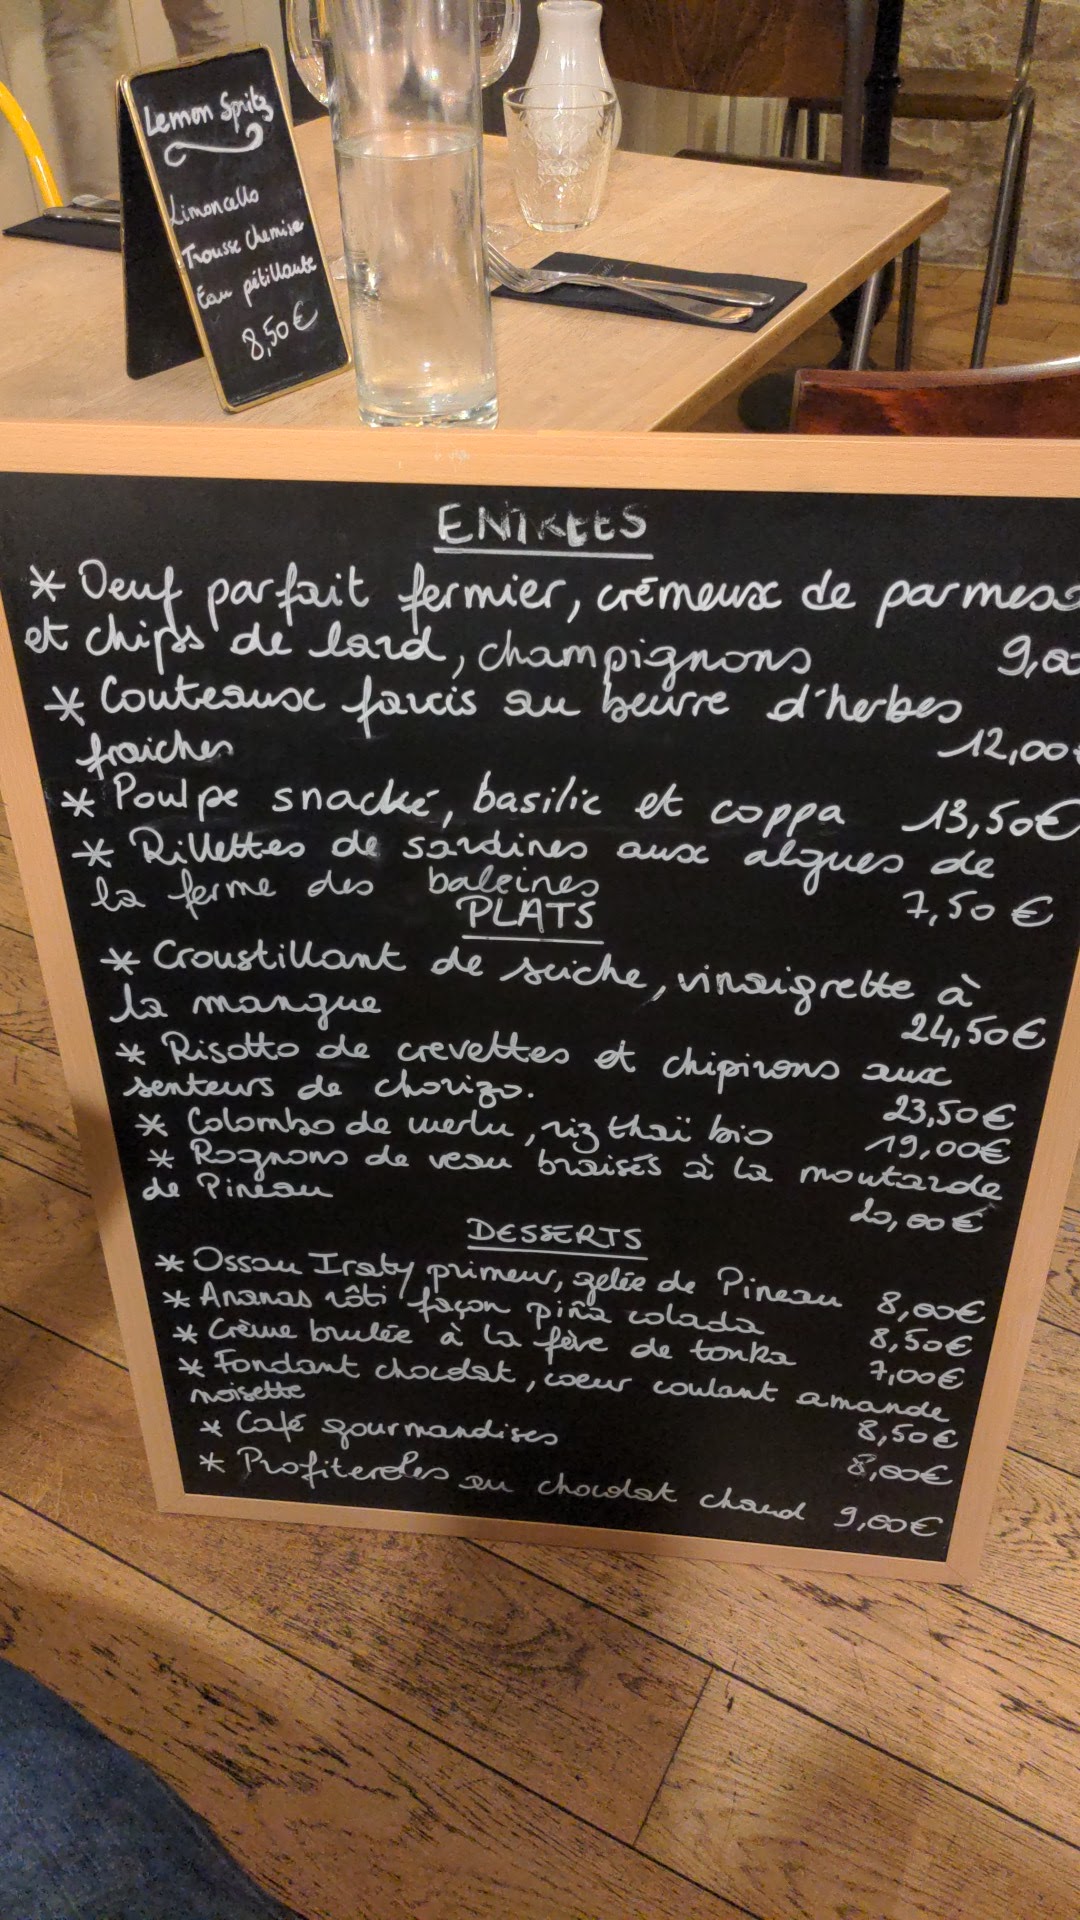 Lemon Spritz
Limoncello
Trousse Chemise
Eau pétillante
8,50€
ENTREES
* Oeuf parfait fermier, crémeux de parmes
et chips de lard, champignons 9,
* Couteaux farcis au beurre d'herbes
fraiches 12,00
* Poulpe snacké, basilic et coppa 13,50€
* Rillettes de sardines aux algues de
la ferme des baleines 7,50€
PLATS
* Croustillant de seiche, vinaigrette à
la mangue 24,50€
* Risotto de crevettes et chipirons aux
senteurs de chorizo. 23,50€
* Colombo de merlu, riz thaï bio 19,00€
* Rognons de veau braisés à la moutarde
de Pineau 20,00€
DESSERTS
* Ossau Iraty primeur, gelée de Pineau 8,00€
* Ananas rôti façon piña colada 8,50€
* Crème brulée à la fève de tonka 7,00€
* Fondant chocolat, coeur coulant amande
noisette 8,50€
* Café gourmandises 8,00€
* Profiteroles au chocolat chaud 9,00€